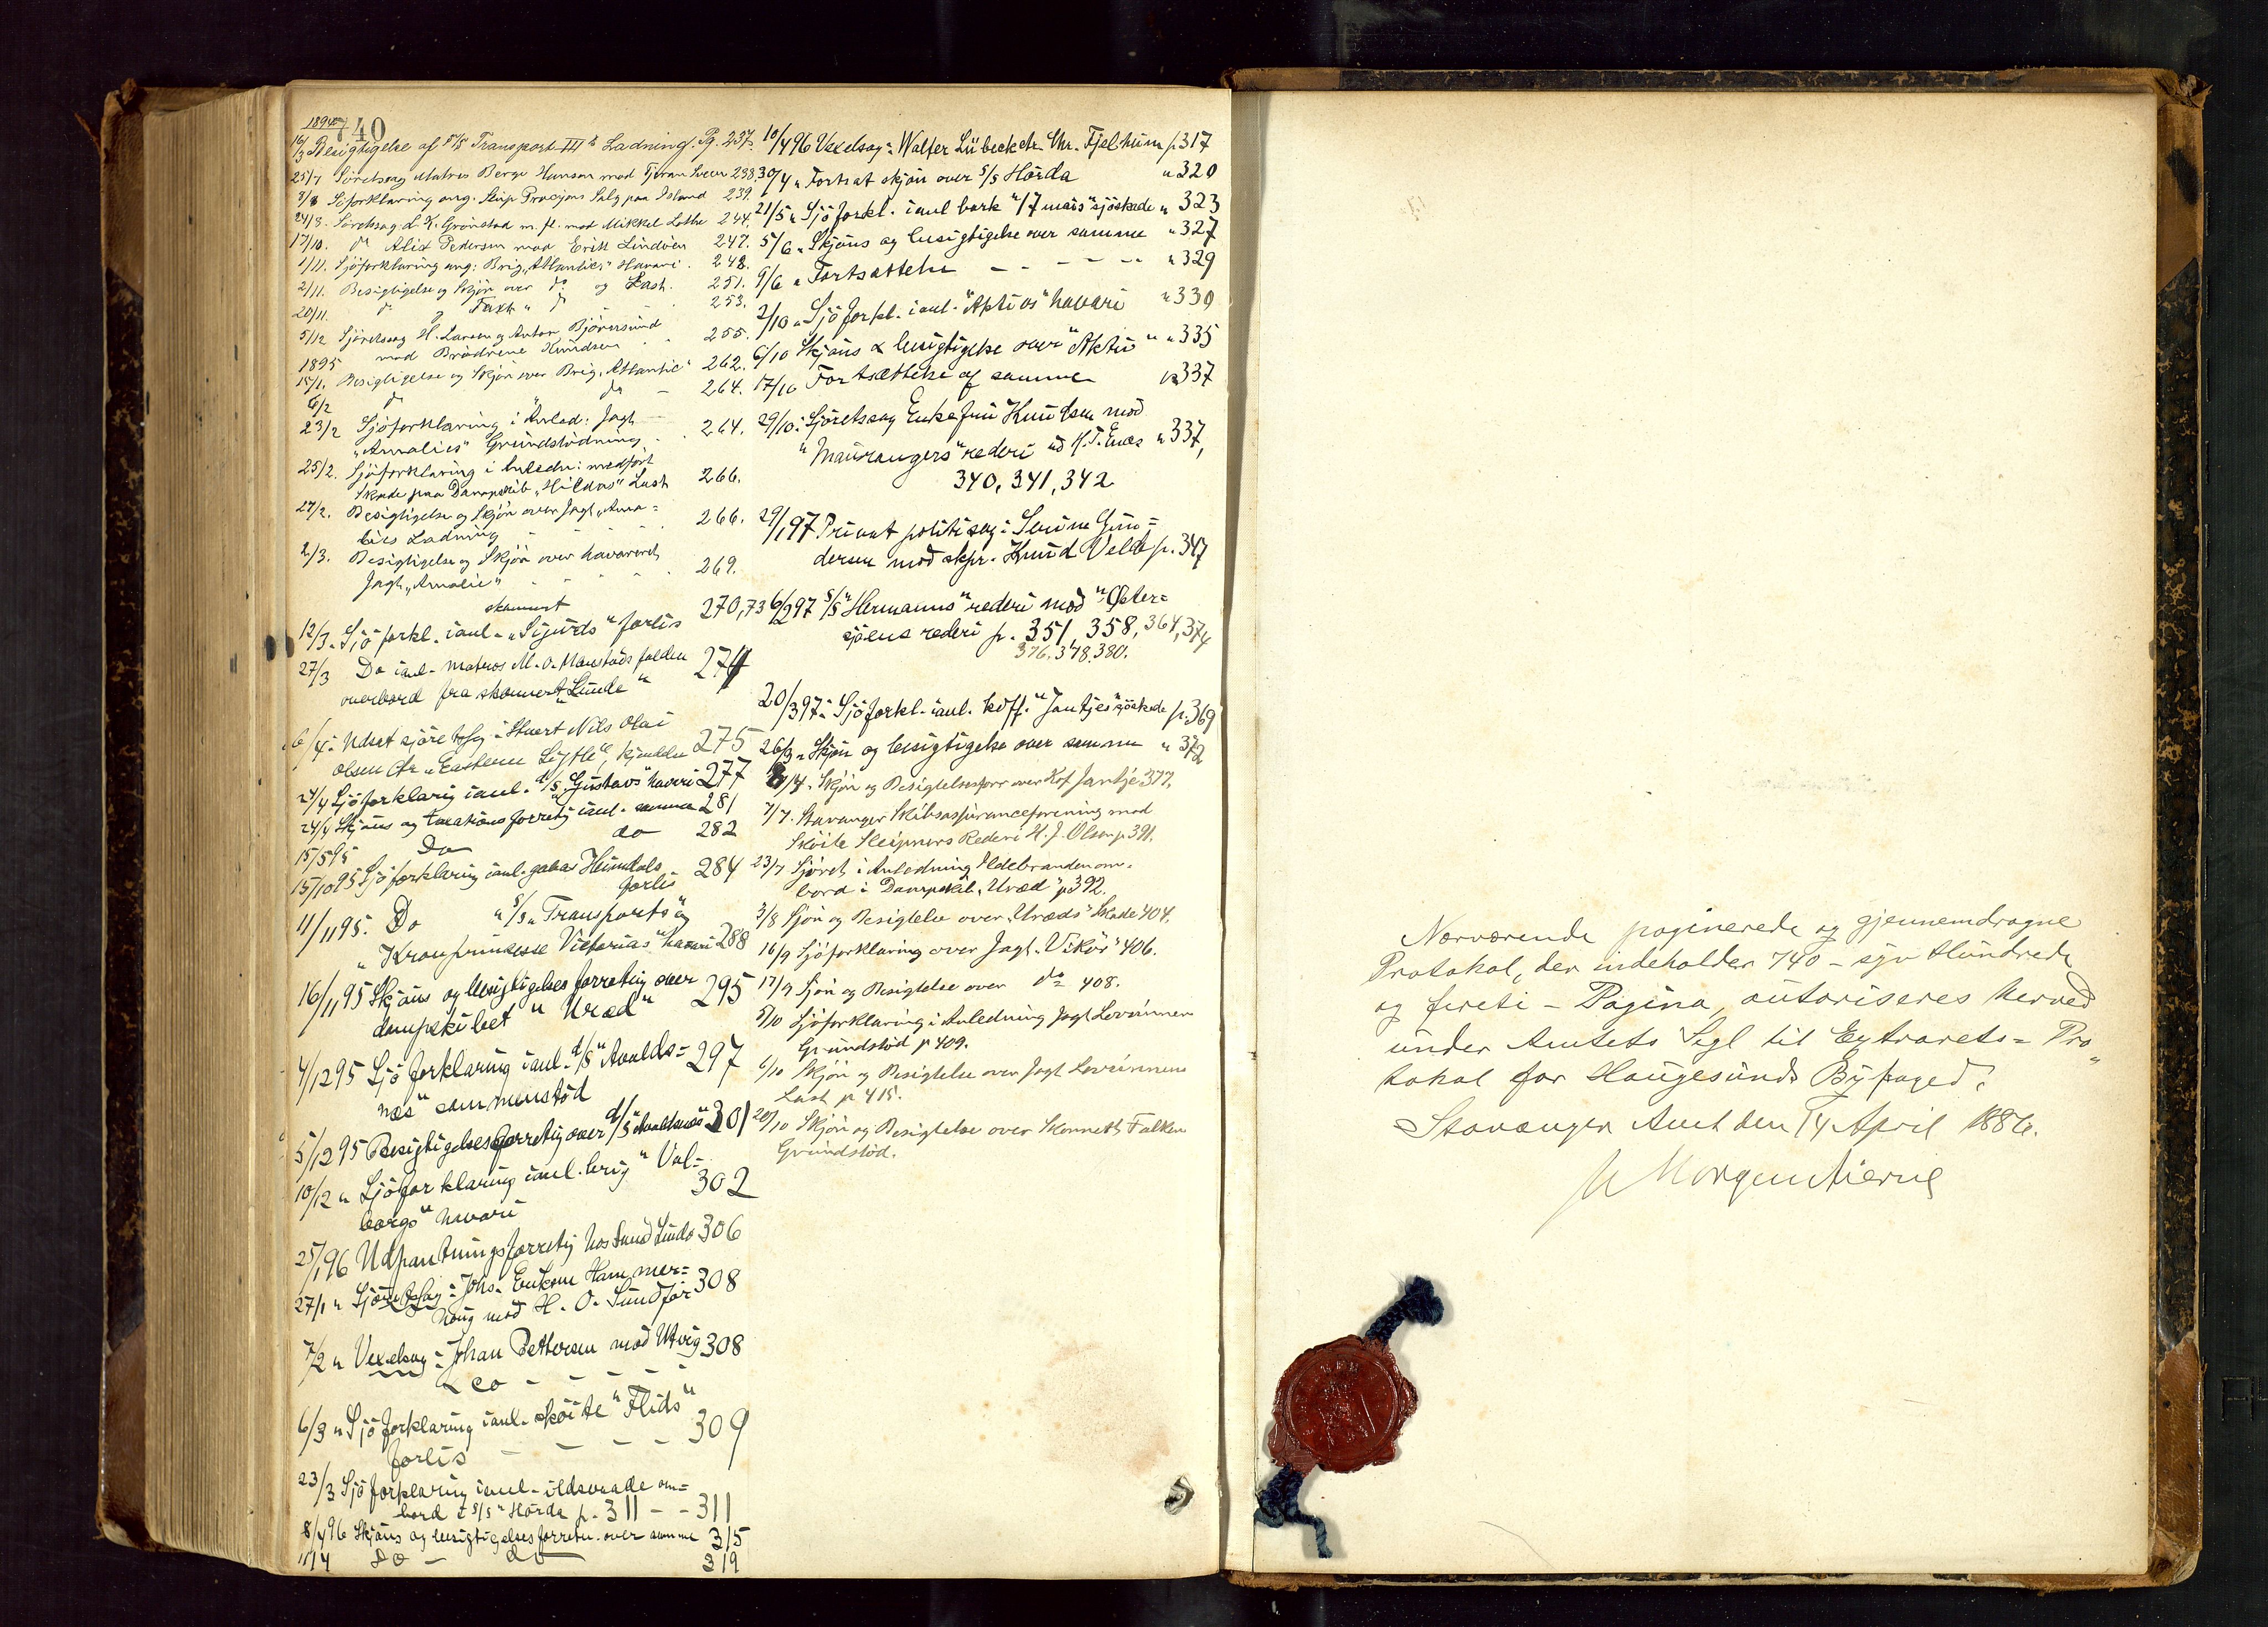 740
1894
16/3 Besigtigelse af S/S Transport III's Ladning. Pg. 237.
25/7 Søretssag Matros Berge Hansen mod Tjeran Sveen 238.
Søforklaring ang. Skip Procyons Salg paa Island 239.
24/8. Søretssag d. K. Grönstad m. fl. mod Mikkel Lothe 244.
17/10. do Alix Pedersen mod Erik Lindöen 247.
1/11. Sjöforklaring ang: Brig „Atlantics" Havari. 248.
2/11. Besigtigelse og Skjön over do og Last. 251.
20/11. do og Taxt " do 253.
5/12 Sjöretssag H. Larsen og Anton Bjönersund
mod Brödrene Knudsen 255.
1895
15/1. Besigtigelse og Skjön over Brig. Atlantic" 262.
6/2 do do - 264.
23/2 Sjöforklaring i Anled: Jagt
„Amalies" Grundstödning. 264.
25/2. Sjöforklaring i Anledn: medfört
Skade paa Dampskib „Hildas" Last 266.
27/2. Besigtigelse og Skjön over Jagt „Ama=
lies Ladning 266.
2/3. Besigtigelse og Skjön over havareret
Jagt „Amalie" 269.
skonnert
12/3. Sjöforkl. ianl. „Sigurds" forlis 270,73
27/3 Do ianl. matros M. O. Manstads falden
overbord fra skonnert "Lunde" 274
6/4. Udset sjöretssag: Stuert Nils Olai
Olsen ctr. "Eastern Lytle", kjendelse 275
24/4 Sjöforklarig ianl. d/s "Gustavs" havari 277
24/4 Skjöns og taxationsforretng ianl. samme 281
15/5 95 Do do 282
15/10 95 Sjöforklaring ianl. galeas Heimdals
forlis 284
11/11 95. Do " S/S " Transports" og
" Kronprinsesse Victorias" havari 288
16/11 95 Skjöns og besigtigelses forretnig over
dampskibet " Uræd" 295
4/12 95 Sjöforklaring ianl. d/s "Avalds=
næs" sammenstöd 297
5/12 95 Besigtigelsesforretnig over d/s "Avaldsnæs" 301
10/12 " Sjöforklaring ianl. brig " Val=
borgs" havari 302
25/1 96 Udpantningsforretnig hos Lund Linde 306
27/1 " Sjöretssag: Johs. Eriksen Hammer=
haug mod H. O. Sundför 308
7/2 " Vexelsag: Johan Pettersen mod Utvig 308
& co - - - -
6/3 " Sjöforklaring ianl. sköite "Flids"
forlis - - - - 309
23/3 Sjöforklaring ianl. ildsvaade om=
bord i S/S " Hörda p. 311 - - 311
8/4 96 Skjöns og besigtigelsesforretn. over samme 315
11/4 do - do 319
10/4 96 Vexelsag: Walter Lübeck ctr. Chr. Fjelthun p. 317
30/4 " Fortsat skjön over S/S Hörda " 320
21/5 " Sjöforkl. ianl bark "17 mais" sjöskade " 323
5/6 " Skjöns og besigtigelse over samme " 327
9/6 " Fortsættelse - - - - - " 329
2/10 " Sjöforkl. ianl. "Aktivs" havari " 330
6/10 Skjöns & besigtigelse over "Aktiv" " 335
17/10 Fortsættelse af samme " 337
29/10. Sjöretssag Enkefru Knudsen mod
" Maurangers" rederi ved K. T. Enes " 337,
340, 341, 342
29/1 97 Privat politisag: Serine Gun=
dersen mod skpr. Knud Velde p. 347
6/2 97 S/S "Hermanns" rederi mod "Øster=
sjöens rederi p. 351, 358, 364, 374
376. 378. 380.
20/3 97. Sjöforkl. ianl. koff. "Jantjes" sjöskade p. 369
26/3 " Skjön og besigtigelse over samme " 372
/4. Skjön og Besigtelsesforr over Kof Jantje 377.
7/7. Stavanger Skibsassuranceforening mod
Sköite Sleipners Rederi H. J. Olsen p 391.
23/7 Sjöret i Anledning Ildebranden om-
bord i Dampskib. Uræd" p 392.
3/8 Sjön og Besigtelse over „Uræds" Skade 404.
16/9 Sjöforklaring over Jagt. Vikör" 406.
17/9 Sjön og Besigtelse over do 408.
5/10 Sjöforklaring i Anledning Jagt Lovinnen
Grundstöd p 409.
6/10 Skjön og Besigtelse over Jagt Lovinnens
Last p 415.
20/10 Skjön og Besigtelse over Skonnert Falken
Grundstöd.
Nærværende paginerede og gjennemdragne
Protokol, der indeholder 740 - syv Hundrede
og fireti - Pagina, autoriseres herved
under Amtets Segl til Extrarets= Pro
tokol for Haugesunds Byfoged.
Stavanger Amt den 14 April 1886.